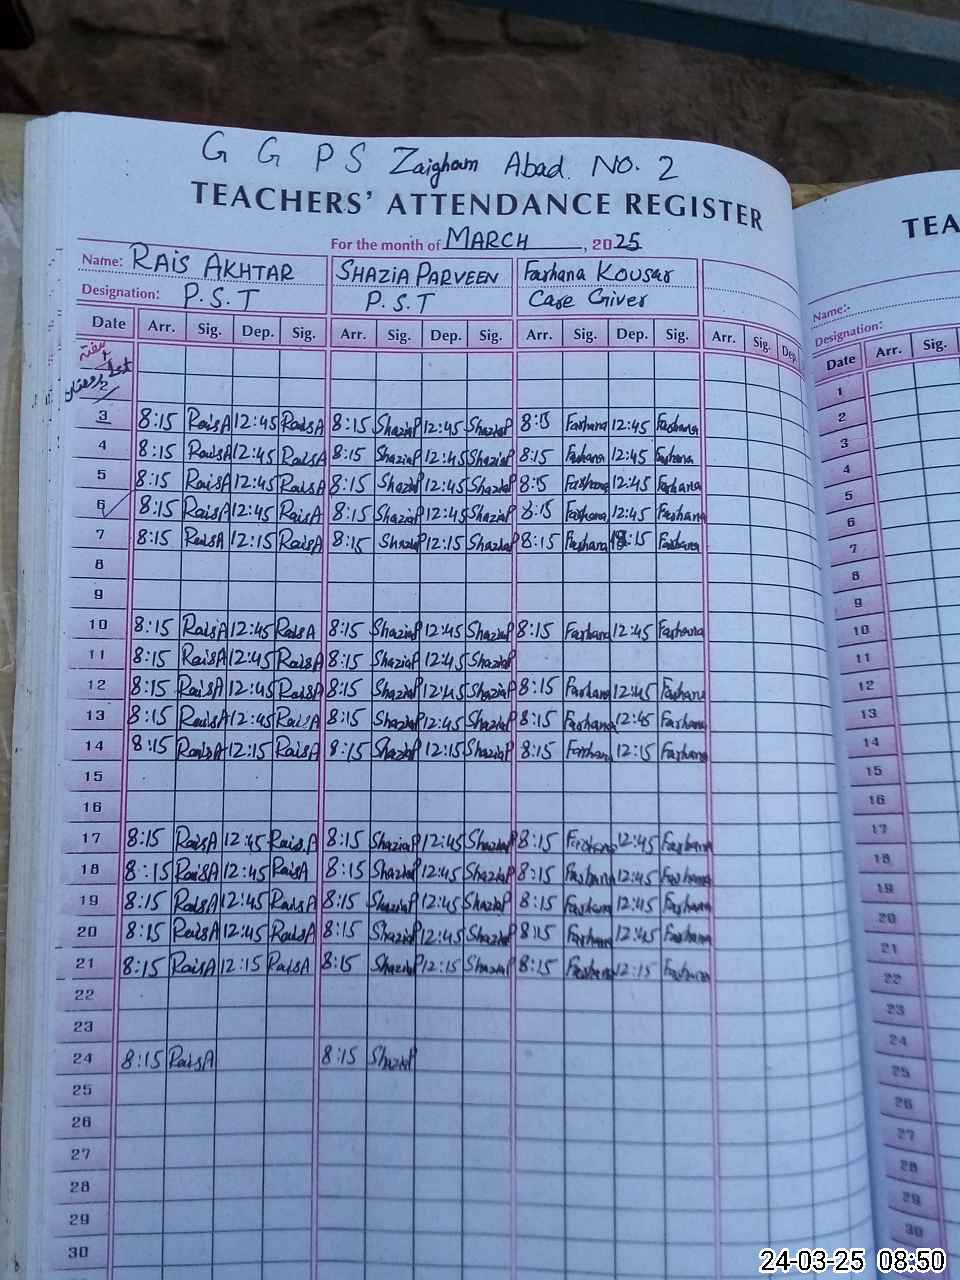 G G P S Zaigham Abad. No. 2
TEACHERS' ATTENDANCE REGISTER
For the month of MARCH, 2025
Name: RAIS AKHTAR SHAZIA PARVEEN Farhana Kousar
Designation: P.S.T P.S.T Care Giver
Date Arr. Sig. Dep. Sig. Arr. Sig. Dep. Sig. Arr. Sig. Dep. Sig. Arr. Sig. Dep.
1st
2
3 8:15 RaisA 12:45 RaisA 8:15 ShaziaP 12:45 ShaziaP 8:15 Farhana 12:45 Farhana
4 8:15 RaisA 12:45 RaisA 8:15 ShaziaP 12:45 ShaziaP 8:15 Farhana 12:45 Farhana
5 8:15 RaisA 12:45 RaisA 8:15 ShaziaP 12:45 ShaziaP 8:15 Farhana 12:45 Farhana
6 8:15 RaisA 12:45 RaisA 8:15 ShaziaP 12:45 ShaziaP 8:15 Farhana 12:45 Farhana
7 8:15 RaisA 12:15 RaisA 8:15 ShaziaP 12:15 ShaziaP 8:15 Farhana 12:15 Farhana
8
9
10 8:15 RaisA 12:45 RaisA 8:15 ShaziaP 12:45 ShaziaP 8:15 Farhana 12:45 Farhana
11 8:15 RaisA 12:45 RaisA 8:15 ShaziaP 12:45 ShaziaP
12 8:15 RaisA 12:45 RaisA 8:15 ShaziaP 12:45 ShaziaP 8:15 Farhana 12:45 Farhana
13 8:15 RaisA 12:45 RaisA 8:15 ShaziaP 12:45 ShaziaP 8:15 Farhana 12:45 Farhana
14 8:15 RaisA 12:15 RaisA 8:15 ShaziaP 12:15 ShaziaP 8:15 Farhana 12:15 Farhana
15
16
17 8:15 RaisA 12:45 Rais.A 8:15 ShaziaP 12:45 ShaziaP 8:15 Farhana 12:45 Farhana
18 8:15 RaisA 12:45 RaisA 8:15 ShaziaP 12:45 ShaziaP 8:15 Farhana 12:45 Farhana
19 8:15 RaisA 12:45 RaisA 8:15 ShaziaP 12:45 ShaziaP 8:15 Farhana 12:45 Farhana
20 8:15 RaisA 12:45 RaisA 8:15 ShaziaP 12:45 ShaziaP 8:15 Farhana 12:45 Farhana
21 8:15 RaisA 12:15 RaisA 8:15 ShaziaP 12:15 ShaziaP 8:15 Farhana 12:15 Farhana
22
23
24 8:15 RaisA 8:15 ShaziaP
25
26
27
28
29
30
TEA
Name:-
Designation:
Date Arr. Sig.
1
2
3
4
5
6
7
8
9
10
11
12
13
14
15
16
17
18
19
20
21
22
23
24
25
26
27
28
29
30
24-03-25 08:50